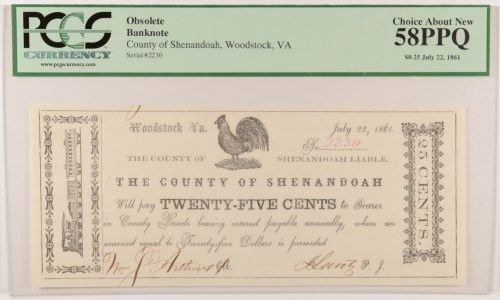 PCGS
CURRENCY
www.pcgscurrency.com
Obsolete
Banknote
County of Shenandoah, Woodstock, VA
Serial#2230
Choice About New
58PPQ
$0.25 July 22, 1861
Woodstock Va.
July 22, 1861.
No.
THE COUNTY OF
SHENANDOAH LIABLE.
THE COUNTY OF SHENANDOAH
Will pay TWENTY-FIVE CENTS to Bearer
in County Bonds bearing interest payable annually, when an
amount equal to Twenty-five Dollars is presented
Wm J. Arthur Clk.
P. J.
25 CENTS.